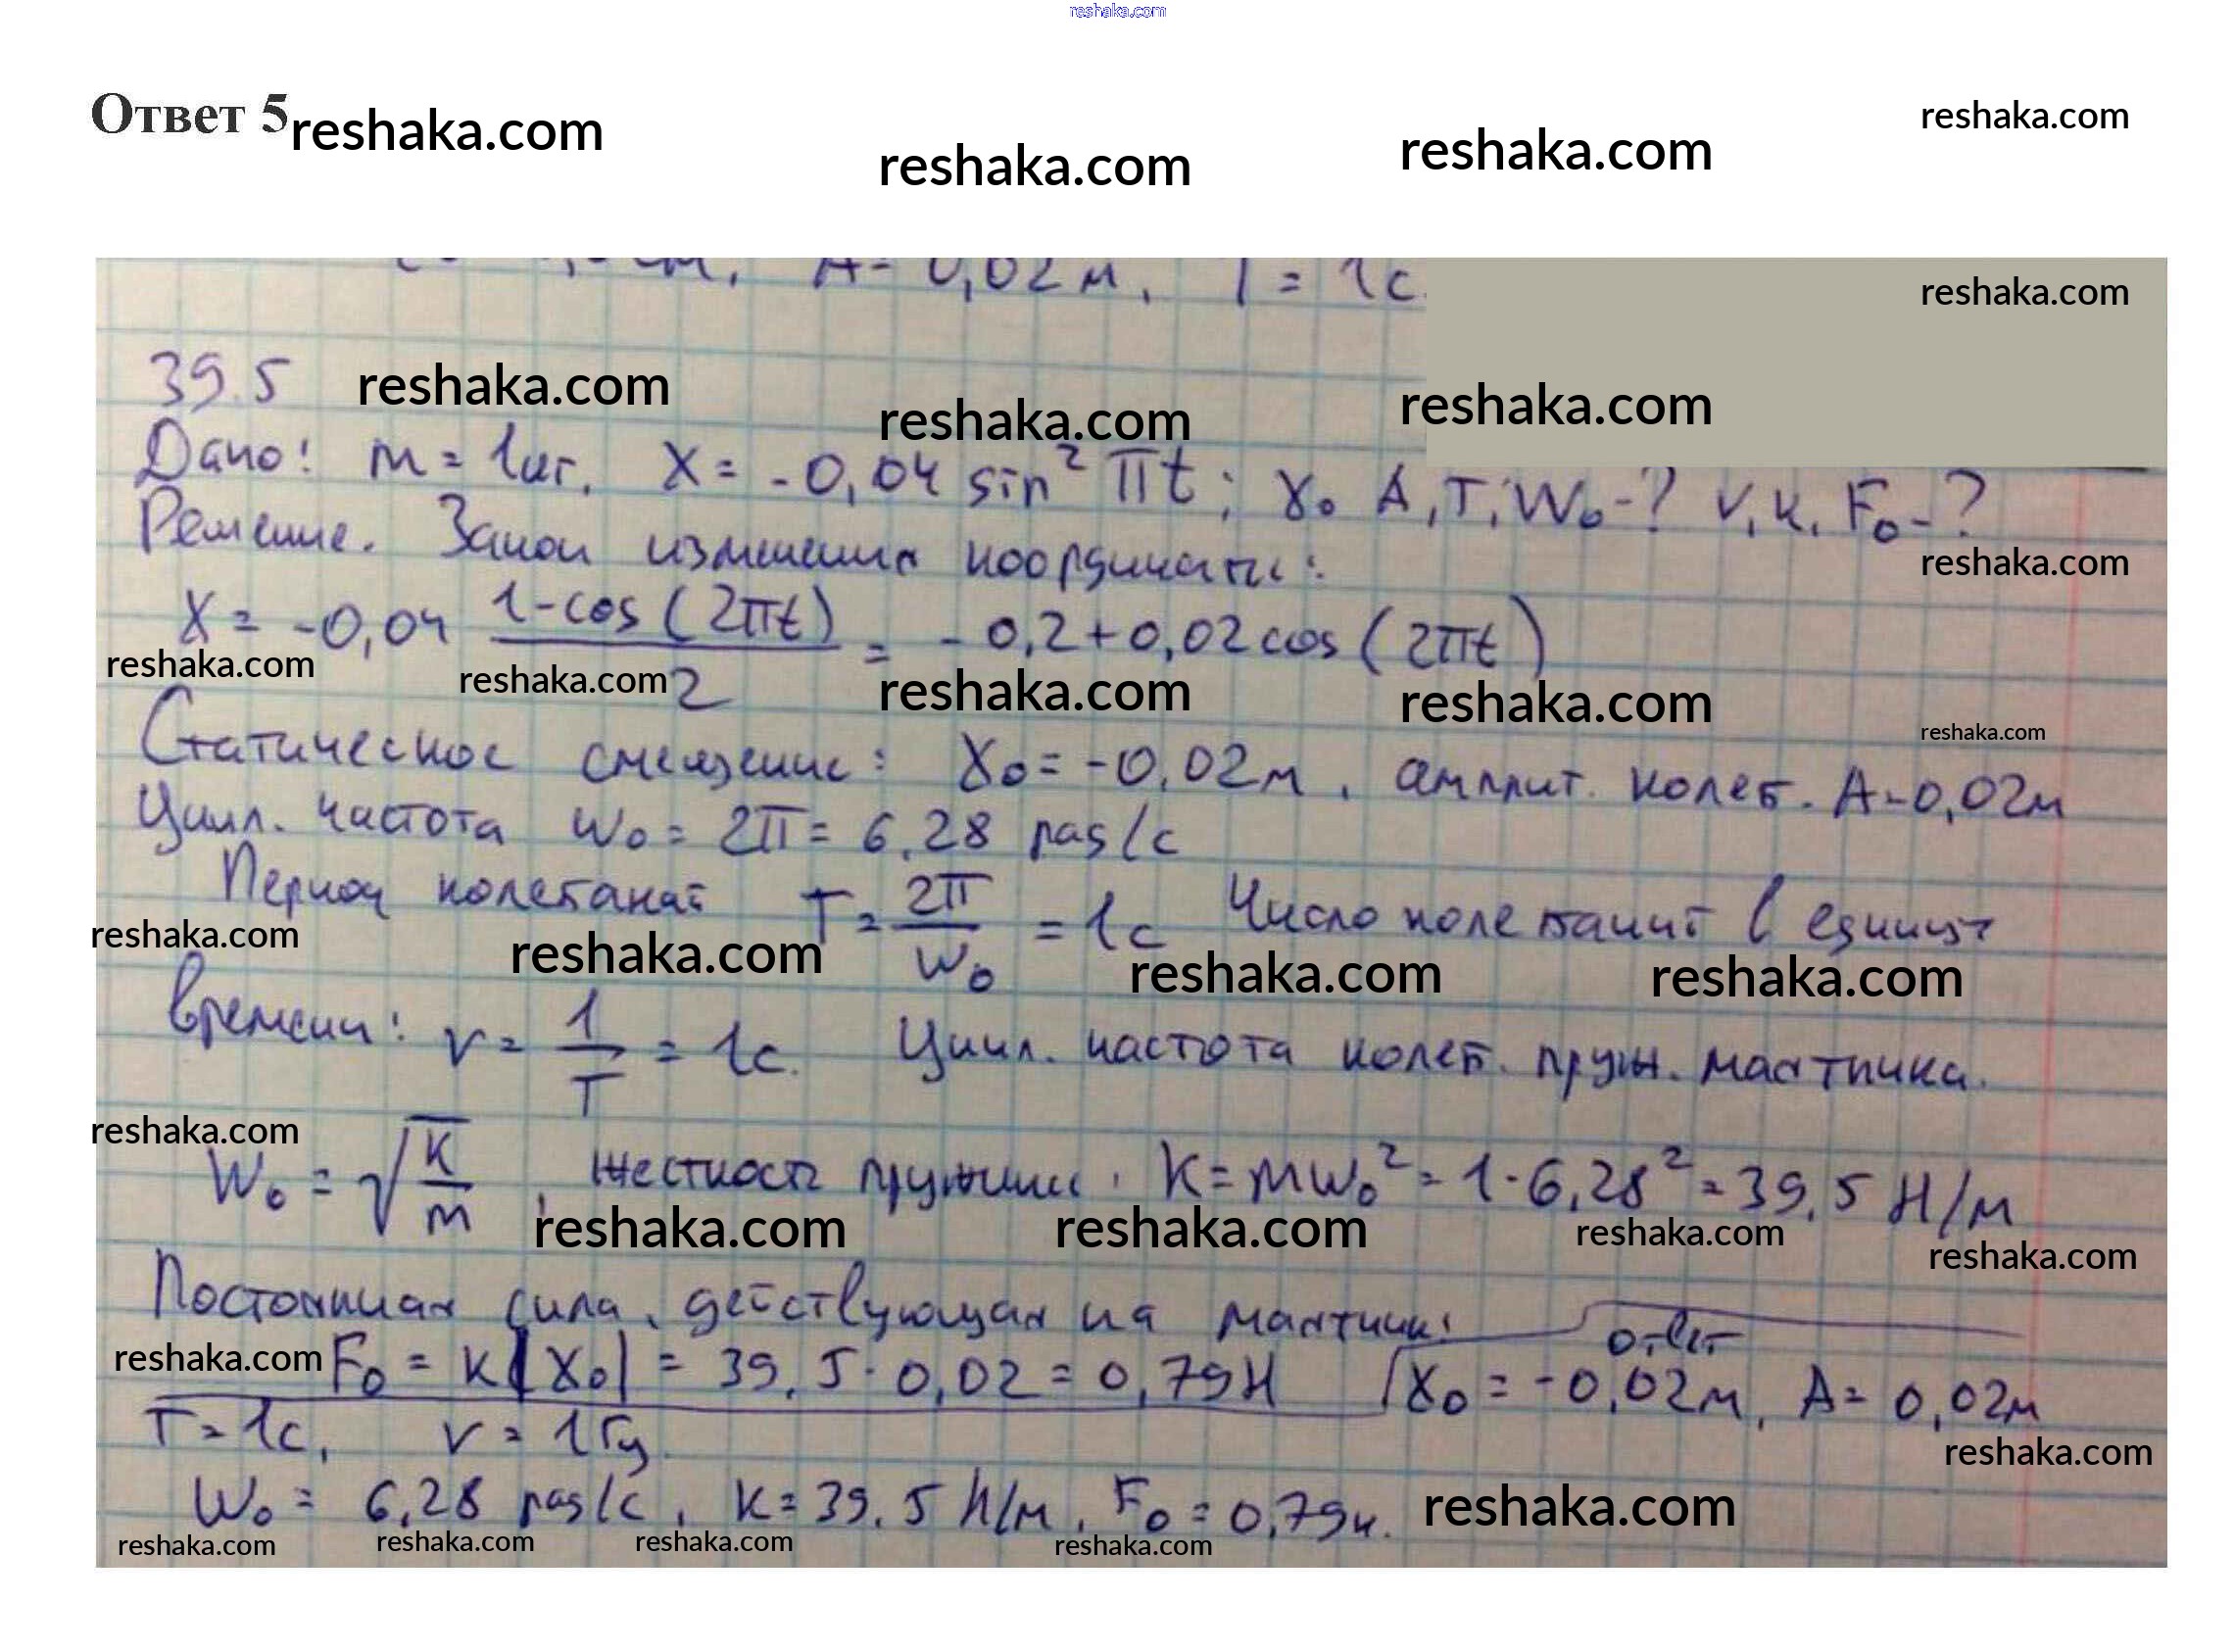 reshaka.com
Ответ 5 reshaka.com reshaka.com reshaka.com reshaka.com
A = 0,02 м, T = 1 с. reshaka.com
39.5 reshaka.com reshaka.com reshaka.com
Дано: m = 1 кг, X = -0,04 sin² πt; X₀ A, T, W₀ -? ν, k, F₀ -?
Решение. Закон изменения координаты: reshaka.com
X = -0,04 (1-cos(2πt))/2 = -0,2+0,02 cos(2πt)
reshaka.com reshaka.com reshaka.com reshaka.com reshaka.com
Статическое смещение: X₀ = -0,02 м, амплит. колеб. A = 0,02 м
Цикл. частота W₀ = 2π = 6,28 рад/с
Период колебаний T = 2π/W₀ = 1 с Число колебаний в единицу
reshaka.com reshaka.com reshaka.com reshaka.com
времени: ν = 1/T = 1 с. Цикл. частота колеб. пруж. маятника.
reshaka.com
W₀ = √(k/m), жесткость пружины, K = mW₀² = 1·6,28² = 39,5 Н/м
reshaka.com reshaka.com reshaka.com reshaka.com
Постоянная сила, действующая на маятник:
reshaka.com F₀ = k|X₀| = 39,5·0,02 = 0,79 Н ответ X₀ = -0,02 м, A = 0,02 м
T = 1 с, ν = 1 Гц. reshaka.com
W₀ = 6,28 рад/с, k = 39,5 Н/м, F₀ = 0,79 н. reshaka.com
reshaka.com reshaka.com reshaka.com reshaka.com